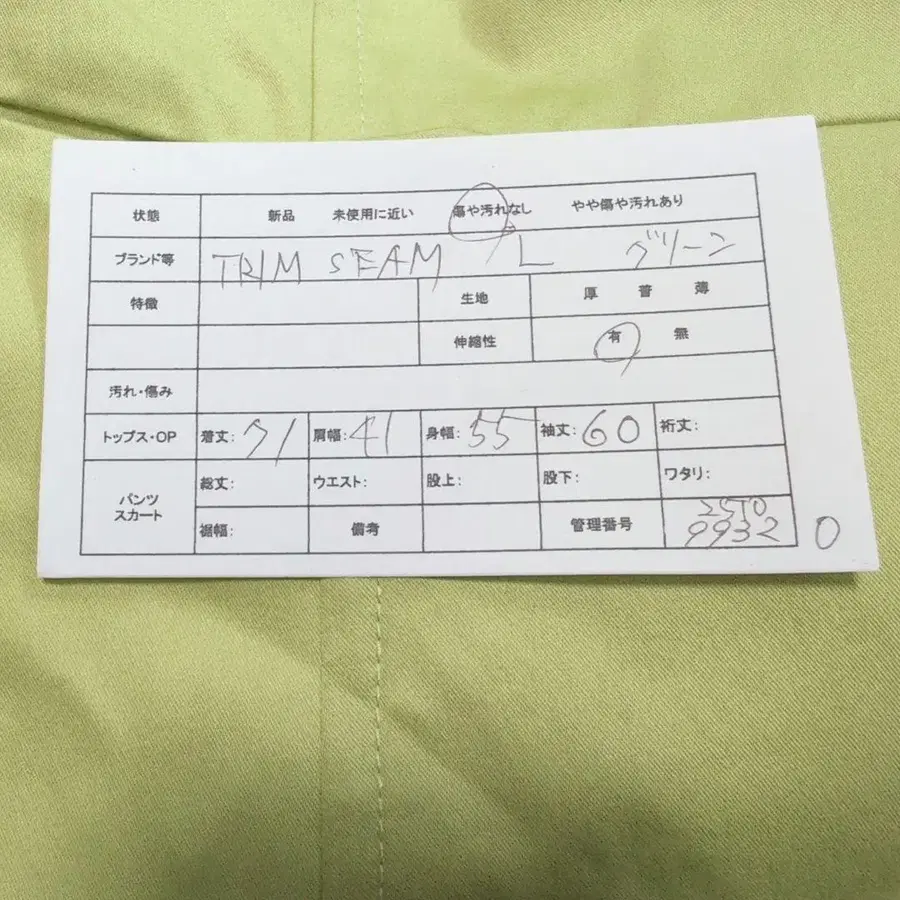 状態 新品 未使用に近い 傷や汚れなし やや傷や汚れあり
ブランド等 TRIM SEAM L グリーン
特徴 生地 厚 普 薄
伸縮性 有 無
汚れ・傷み
トップス・OP 着丈: 71 肩幅: 41 身幅: 55 袖丈: 60 裄丈:
パンツ 総丈: ウエスト: 股上: 股下: ワタリ:
スカート
裾幅: 備考 管理番号
9932 0